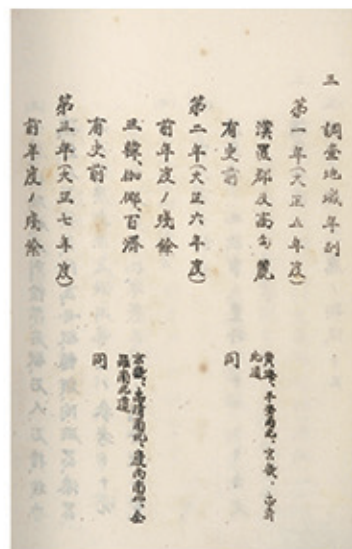 三 調査地域年別
第一年(大正五年度)
漢置郡及高句麗
黄海、平安南北、京畿、忠清
北道
有史前
同
第二年(大正六年度)
前年度ノ残餘
三韓、伽倻、百濟
京畿、忠清南北、慶尚南北、全
羅南北道
有史前
同
第三年(大正七年度)
前年度ノ残餘